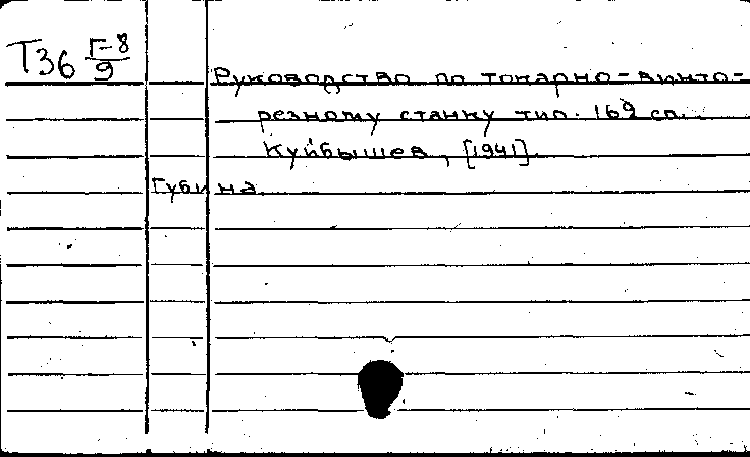 Т36 Г-8
9
Руководство по токарно-винто-
резному станку тип. 169 сп.
Куйбышев, [1941].
Губина